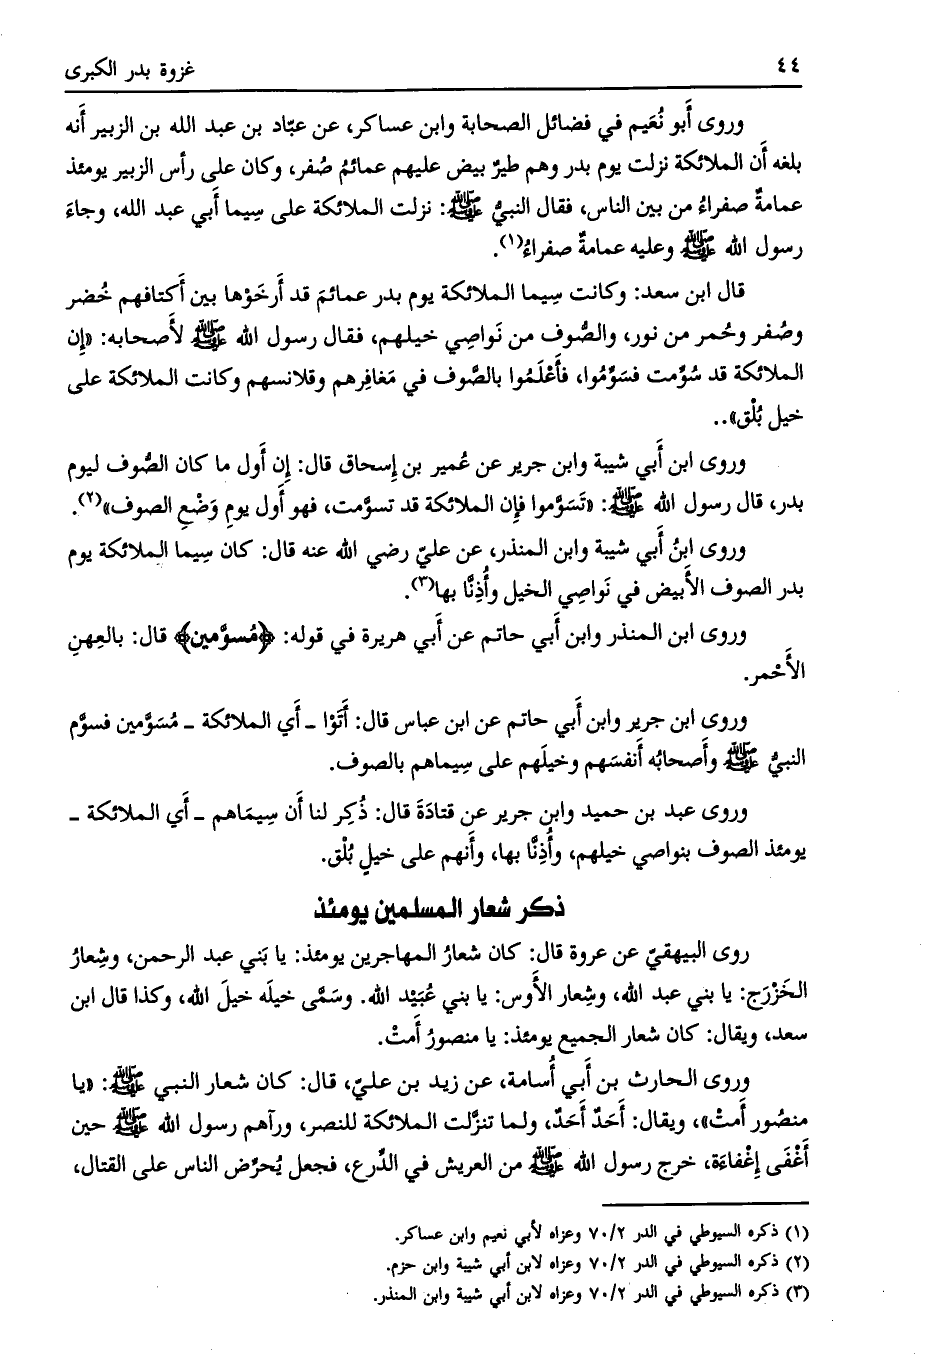 ٤٤ غزوة بدر الكبرى
وروى أَبو نُعَيم في فضائل الصحابة وابن عساكر، عن عبّاد بن عبد الله بن الزبير أَنه
بلغه أَن الملائكة نزلت يوم بدر وهم طيرٌ بيض عليهم عمائمُ صُفر، وكان على رأس الزبير يومئذ
عمامةٌ صفراءُ من بين الناس، فقال النبيُّ ﷺ: نزلت الملائكة على سِيما أَبي عبد الله، وجاءَ
رسول الله ﷺ وعليه عمامةٌ صفراءُ(١).
قال ابن سعد: وكانت سِيما الملائكة يوم بدر عمائمَ قد أَرخَوْها بين أَكتافهم خُضر
وصُفر وحُمر من نور، والصُّوف من نَواصِي خيلهم، فقال رسول الله ﷺ لأَصحابه: «إِن
الملائكة قد سُوِّمت فسَوِّمُوا، فأَعْلَمُوا بالصُّوف في مَغافِرهم وقلانسهم وكانت الملائكة على
خيل بُلْق»..
وروى ابن أَبي شيبة وابن جرير عن عُمير بن إِسحاق قال: إِن أَول ما كان الصُّوف ليوم
بدر، قال رسول الله ﷺ: «تَسَوَّموا فإِن الملائكة قد تسوَّمت، فهو أَول يومٍ وَضْعِ الصوف»(٢).
وروى ابنُ أَبي شيبة وابن المنذر، عن عليّ رضي الله عنه قال: كان سِيما الملائكة يوم
بدر الصوف الأَبيض في نَواصِي الخيل وأُذنَّا بها(٣).
وروى ابن المنذر وابن أَبي حاتم عن أَبي هريرة في قوله: ﴿مُسوَّمين﴾ قال: بالعِهنِ
الأَحْمر.
وروى ابن جرير وابن أَبي حاتم عن ابن عباس قال: أَتَوْا ـ أَي الملائكة ـ مُسَوَّمين فسوَّم
النبيُّ ﷺ وأَصحابُه أَنفسَهم وخيلَهم على سِيماهم بالصوف.
وروى عبد بن حميد وابن جرير عن قتادَةَ قال: ذُكِر لنا أَن سِيمَاهم ـ أَي الملائكة ـ
يومئذ الصوف بنواصي خيلهم، وأُذنَّا بها، وأَنهم على خيلٍ بُلْق.
ذكر شعار المسلمين يومئذ
روى البيهقيّ عن عروة قال: كان شعارُ المهاجرين يومئذ: يا بَني عبد الرحمن، وشِعارُ
الخَزْرَج: يا بني عبد الله، وشِعار الأَوس: يا بني عُبَيْد الله. وسَمَّى خيلَه خيلَ الله، وكذا قال ابن
سعد، ويقال: كان شعار الجميع يومئذ: يا منصورُ أَمتْ.
وروى الحارث بن أَبي أُسامة، عن زيد بن عليّ، قال: كان شعار النبي ﷺ: «يا
منصُور أَمتْ»، ويقال: أَحَدٌ أَحَدٌ، ولما تنزَّلت الملائكة للنصر، ورآهم رسول الله ﷺ حين
أَغْفَى إِغْفاءَة، خرج رسول الله ﷺ من العريش في الدِّرع، فجعل يُحرِّض الناس على القتال،
(١) ذكره السيوطي في الدر ٧٠/٢ وعزاه لأبي نعيم وابن عساكر.
(٢) ذكره السيوطي في الدر ٧٠/٢ وعزاه لابن أبي شيبة وابن حزم.
(٣) ذكره السيوطي في الدر ٧٠/٢ وعزاه لابن أبي شيبة وابن المنذر.